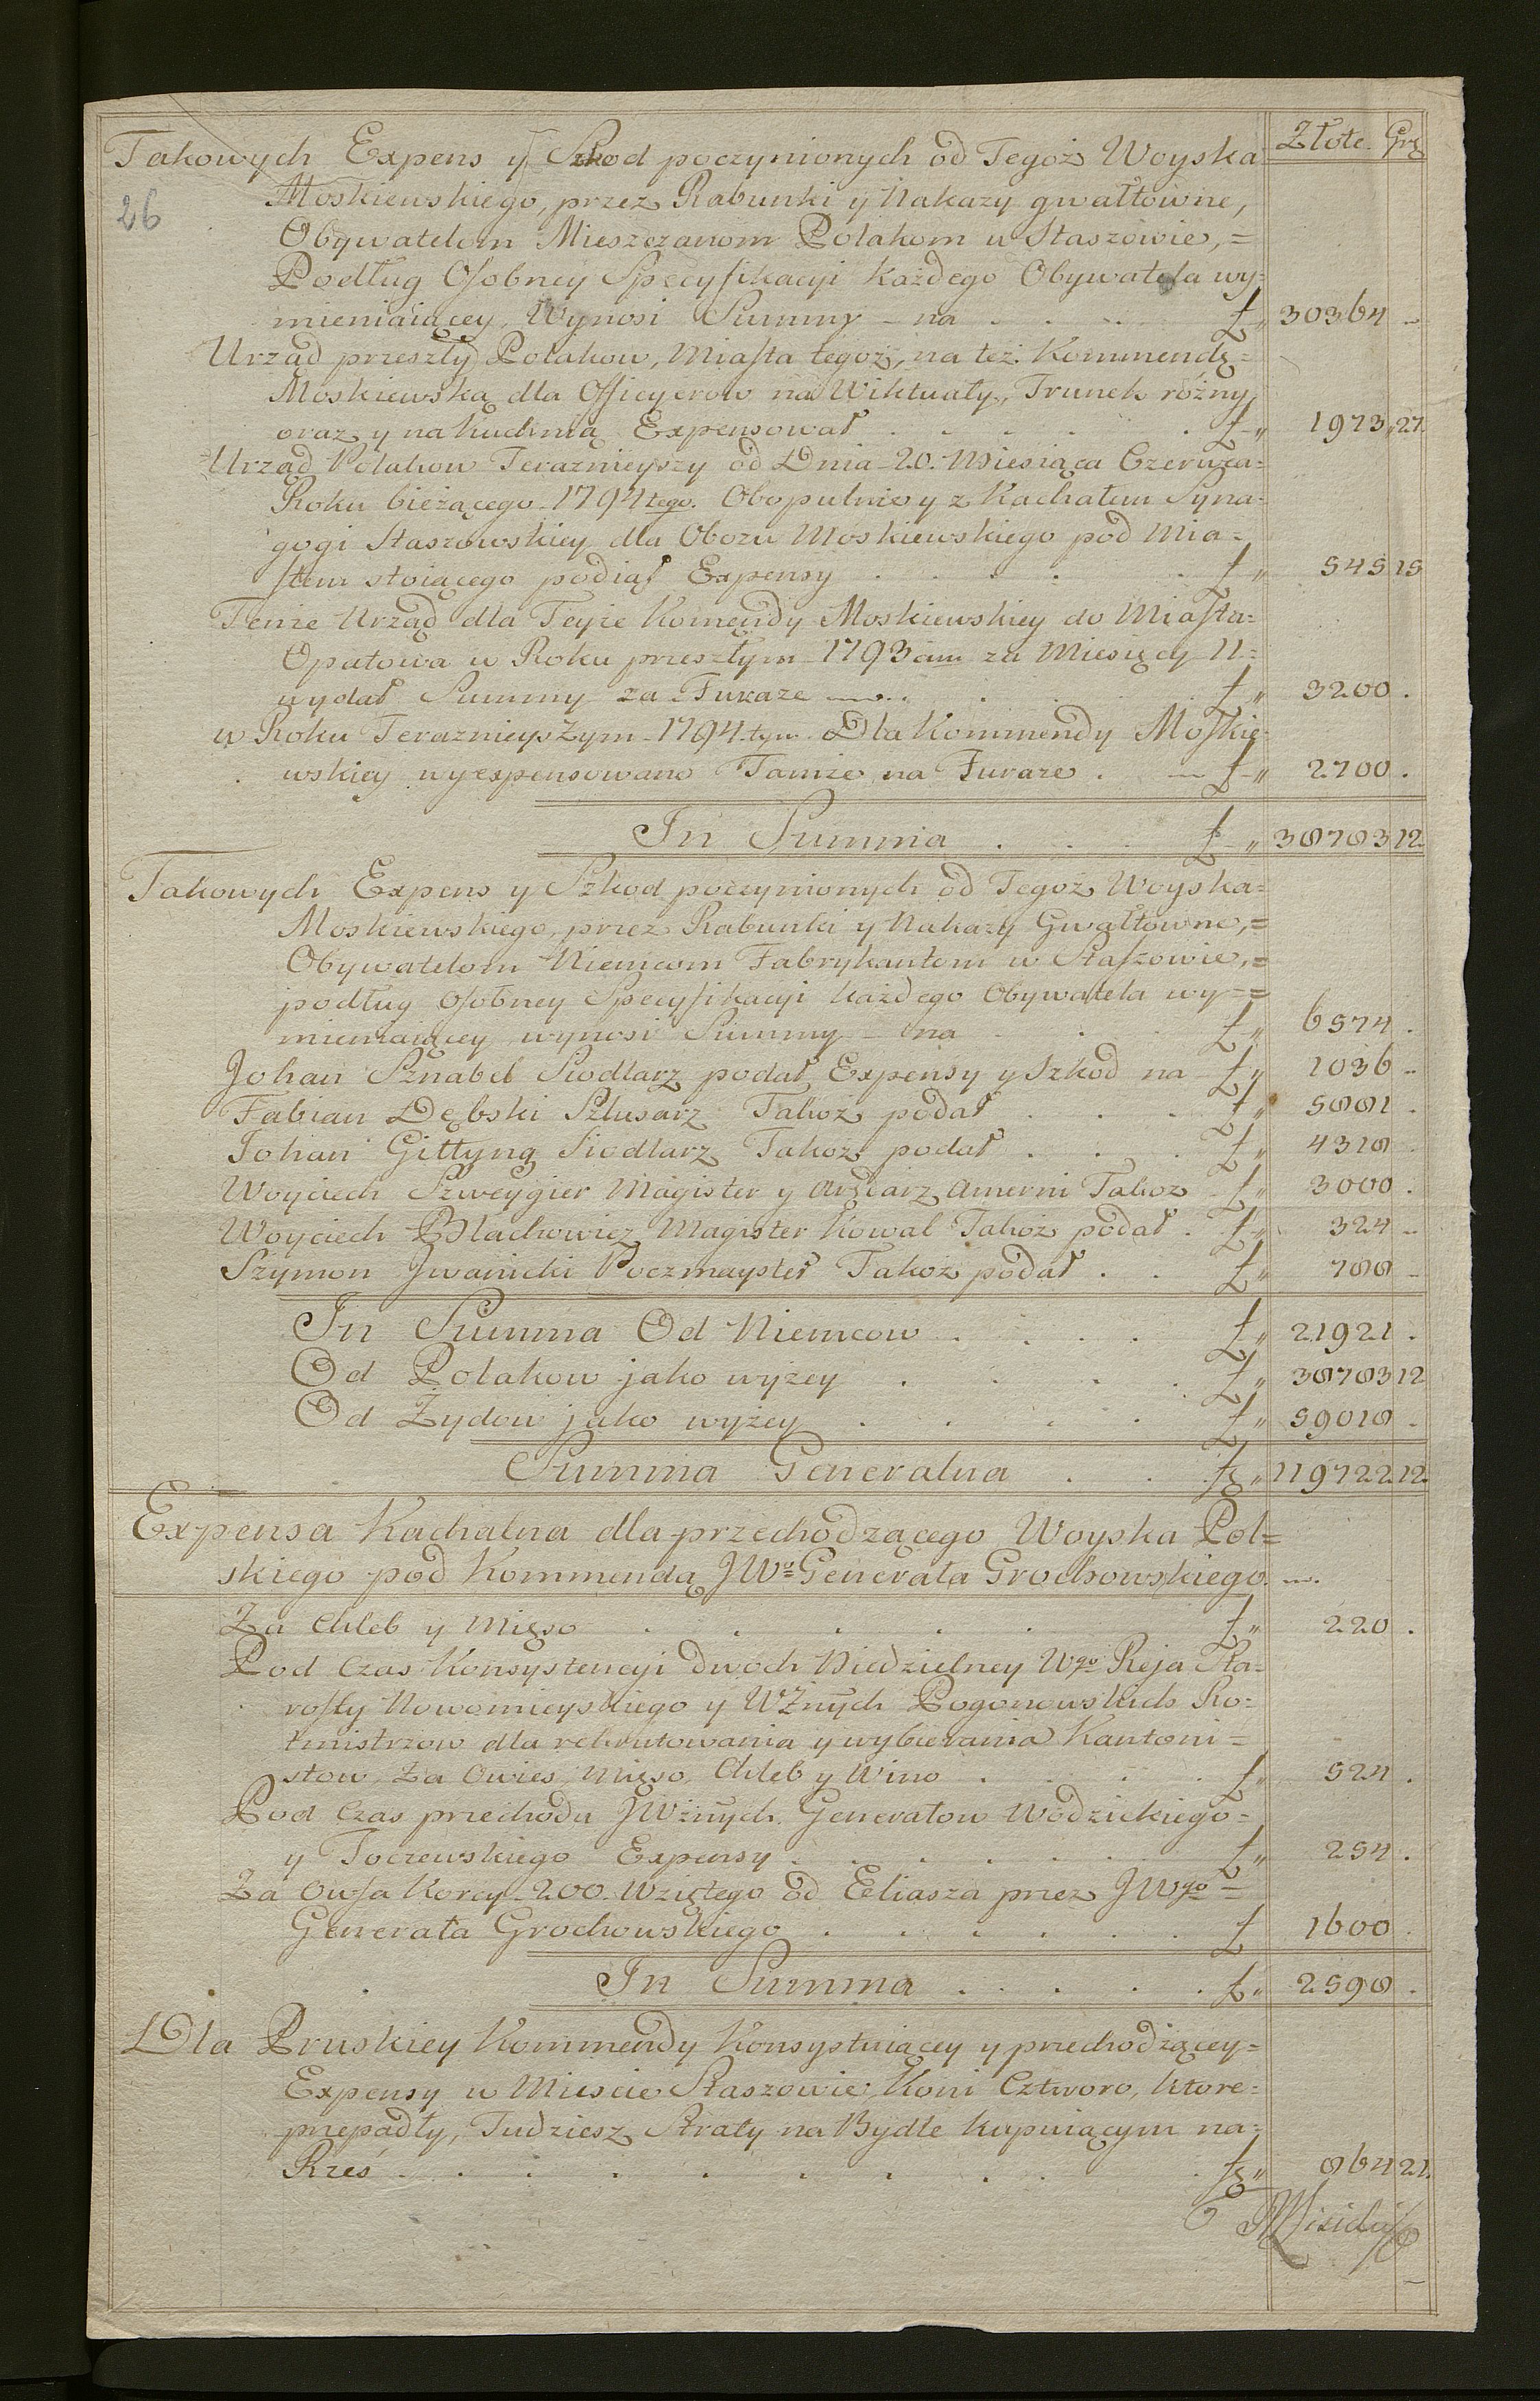 Złote Grz
Takowych Expens y Szkod poczynionych od Tegoż Woyska
26
Moskiewskiego, przez Rabunki y Nakazy gwałtowne,
Obywatelom Mieszczanom Polakom w Staszowie,=
Podług Osobney Specyfikacyi każdego Obywatela wy=
mieniaiącey, Wynosi Summy – na . . . . f„ 30364 –
Urząd przeszły Polakow, Miasta tegoż, na też Kommendę=
Moskiewską dla Officyerow na Wiktuały, Trunek rożny,
oraz y na kuchnią Expensował . . . . . f„ 1973„27.
Urząd Polakow Teraznieyszy od Dnia 20. Miesiąca Czerwca=
Roku bieżącego 1794tego. Obopulnie y z Kachałem Syna=
gogi Staszowskiey, dla Obozu Moskiewskiego pod Mia=
stem stoiącego podiął Expensy . . . . . f„ 545 15
Tenże Urząd dla Teyże Komendy Moskiewskiey do Miasta=
Opatowa w Roku przeszłym 1793cim za Miesięcy 11=
wydał Summy za Furaże . . . . f„ 3200 .
w Roku TeraznieySzym 1794.tym Dla Kommendy Moskie=
wskiey wyexpensowano Tamże na Furaże . – f„ 2700 .
In Summa . . . f„ 38783 12
Takowych Expens y Szkod poczynionych od Tegoż Woyska=
Moskiewskiego, przez Rabunki y Nakazy Gwałtowne,=
Obywatelom Niemcom Fabrykantom w Staszowie,=
podług osobney Specyfikacyi każdego Obywatela wy=
mieniaiącey wynosi Summy – na . . . f„ 6574 .
Johan Sznabel Siodlarz podał Expensy y Szkod na f„ 1036 –
Fabian Dębski Szlusarz Takoż podał . . . f„ 5881 .
Johan Gittyng Siodlarz Takoż podał . . . f„ 4318 .
Woyciech Szweygier Magister y Takoż f„ 3000 .
Woyciech Blachowicz Magister Kowal Takoż podał . f„ 324 –
Szymon Jwanicki Poczmayster Takoż podał . . f„ 788 –
In Summa Od Niemcow . . . . f„ 21921 .
Od Polakow jako wyżey . . . . f„ 38783 12
Od Żydow jako wyżey . . . . f„ 59018 .
Summa Generalna . . f„ 119722 12.
Expensa Kachalna dla przechodzącego Woyska Pol=
skiego pod Kommendą JWo Generała Grochowskiego.
Za Chleb y Mięso . . . . . f„ 220 .
Pod Czas Konsystencyi dwoch Niedzielney Wgo Reja Sta=
rosty Nowomieyskiego y WŻnych Pogonowskich Ro=
tmistrzow dla rekrutowania y wybierania Kantoni=
stow, Za Owies, Mięso, Chleb y Wino . . . . f„ 524 .
Pod Czas przechodu JWżnych Generałow Wodzickiego=
y Toczewskiego Expensy . . . . . f„ 254 .
Za Owsa Korcy 200. Wziętego od Eeliasza przez JWgo=
Generała Grochowskiego . . . . . f 1600 .
In Summa . . . . . f„ 2598 .
Dla Pruskiey Kommendy Konsystuiącey y przechodzącey=
Expensy w Miescie Staszowie, Koni Cztworo, ktore=
przepadły, Tudziesz Straty na Bydle kupuiącym na=
Rzeź . . . . . . . . f„ 864 21.